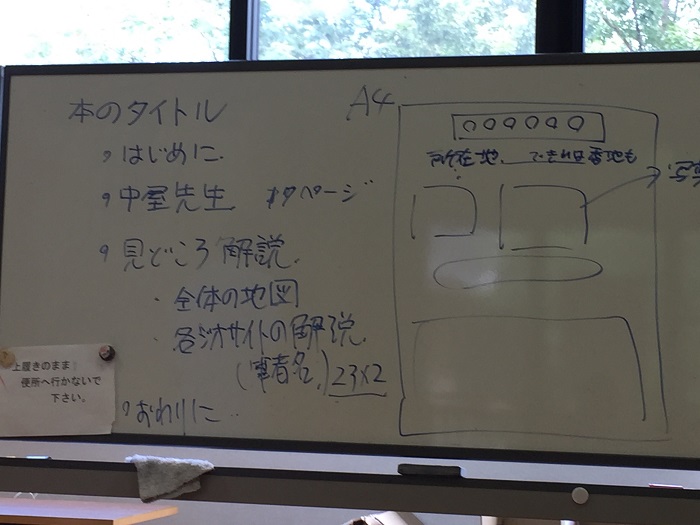 本のタイトル
はじめに
中屋先生 ページ
見どころ解説
・全体の地図
・各ジオサイトの解説
(筆者名) 23×2
おわりに
A4
○○○○○○
所在地、できれば番地も
上履きのまま
便所へ行かないで
下さい。